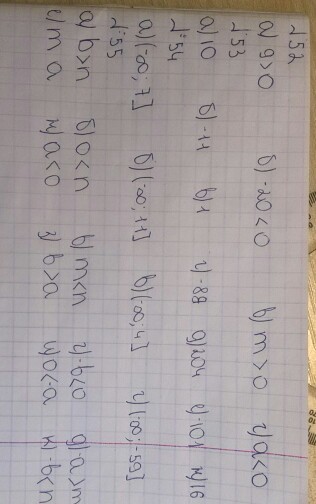 152
а) 9>0 б) -20<0 в) m>0 г) a<0
153
а) 10 б) -11 в) 1 г) -89 д) 204 е) -101 ж) 16
154
а) (-∞; 7] б) (-∞; 11] в) (-∞; 4] г) (-∞; -59]
155
а) b>n б) 0<n в) m<n г) -b<0 д) -a>m
е) m a ж) a<0 з) b>a и) 0<-a к) -b<n